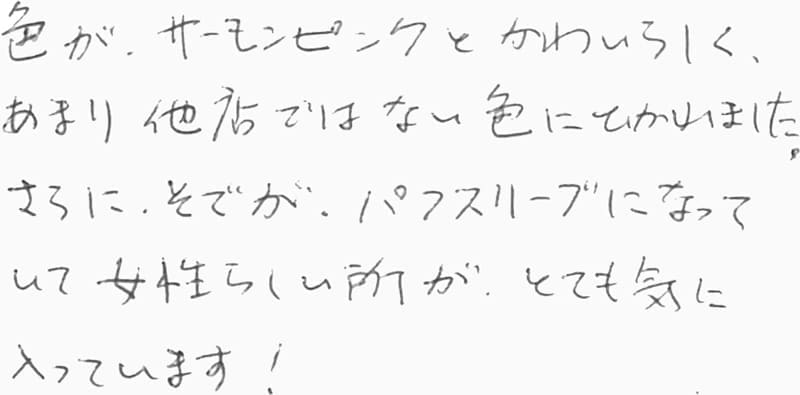 色が、サーモンピンクとかわいらしく、
あまり他店ではない色にひかれました。
さらに、そでが、パフスリーブになって
いて女性らしい所が、とても気に
入っています!